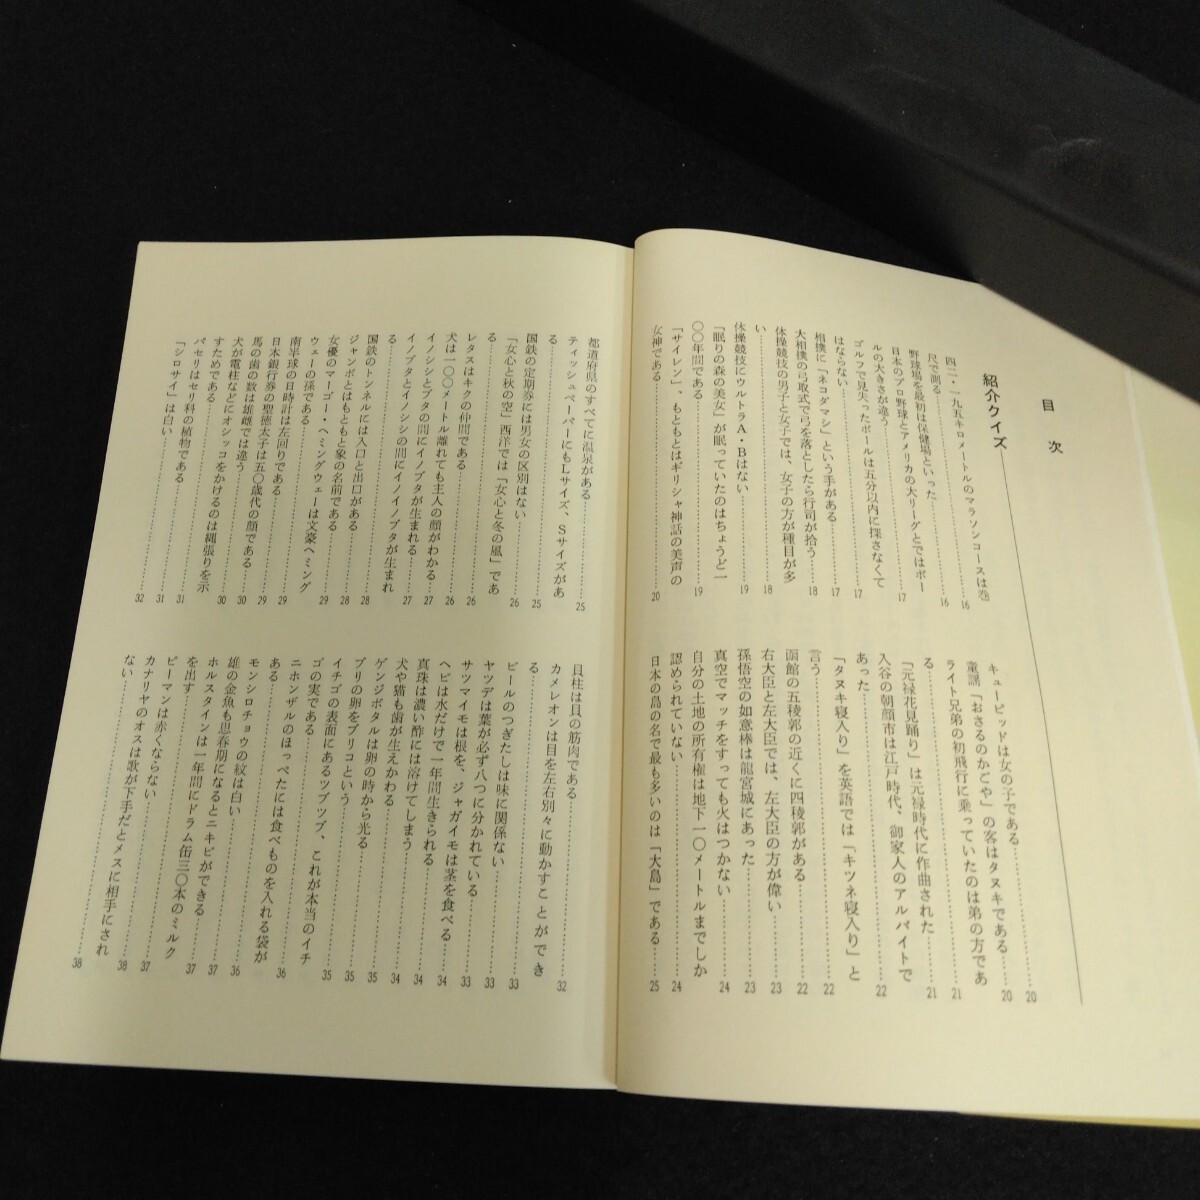 目　次
紹介クイズ
四二・一九五キロメートルのマラソンコースは巻
尺で測る……16
野球場を最初は保健場といった……16
日本のプロ野球とアメリカの大リーグとではボー
ルの大きさが違う……17
ゴルフで見失ったボールは五分以内に探さなくて
はならない……17
相撲に「ネコダマシ」という手がある……17
大相撲の弓取式で弓を落としたら行司が拾う……18
体操競技の男子と女子では、女子の方が種目が多
い……18
体操競技にウルトラA・Bはない……19
「眠りの森の美女」が眠っていたのはちょうど一
〇〇年間である……19
「サイレン」、もともとはギリシャ神話の美声の
女神である……20
キューピッドは女の子である……20
童謡「おさるのかごや」の客はタヌキである……20
ライト兄弟の初飛行に乗っていたのは弟の方であ
る……21
「元禄花見踊り」は元禄時代に作曲された……21
入谷の朝顔市は江戸時代、御家人のアルバイトで
あった……22
「タヌキ寝入り」を英語では「キツネ寝入り」と
言う……22
函館の五稜郭の近くに四稜郭がある……22
右大臣と左大臣では、左大臣の方が偉い……23
孫悟空の如意棒は龍宮城にあった……23
真空でマッチをすっても火はつかない……24
自分の土地の所有権は地下一〇メートルまでしか
認められていない……24
日本の島の名で最も多いのは「大島」である……25
都道府県のすべてに温泉がある……25
ティッシュペーパーにもLサイズ、Sサイズがあ
る……25
国鉄の定期券には男女の区別はない……26
「女心と秋の空」西洋では「女心と冬の風」であ
る……26
レタスはキクの仲間である……26
犬は一〇〇メートル離れても主人の顔がわかる……27
イノシシとブタの間にイノブタが生まれる……27
イノブタとイノシシの間にイノイノブタが生まれ
る……28
国鉄のトンネルには入口と出口がある……28
ジャンボとはもともと象の名前である……28
女優のマーゴー・ヘミングウェーは文豪ヘミング
ウェーの孫である……29
南半球の日時計は左回りである……29
日本銀行券の聖徳太子は五〇歳代の顔である……29
馬の歯の数は雄雌では違う……30
犬が電柱などにオシッコをかけるのは縄張りを示
すためである……30
パセリはセリ科の植物である……31
「シロサイ」は白い……31
貝柱は貝の筋肉である……32
カメレオンは目を左右別々に動かすことができ
る……32
ビールのつぎたしは味に関係ない……33
ヤツデは葉が必ず八つに分かれている……33
サツマイモは根を、ジャガイモは茎を食べる……33
ヘビは水だけで一年間生きられる……34
真珠は濃い酢には溶けてしまう……34
犬や猫も歯が生えかわる……34
ゲンジボタルは卵の時から光る……35
ブリの卵をブリコという……35
イチゴの表面にあるツブツブ、これが本当のイチ
ゴの実である……35
ニホンザルのほっぺたには食べものを入れる袋が
ある……36
モンシロチョウの紋は白い……36
雄の金魚も思春期になるとニキビができる……37
ホルスタインは一年間にドラム缶三〇本のミルク
を出す……37
ピーマンは赤くならない……37
カナリヤのオスは歌が下手だとメスに相手にされ
ない……38